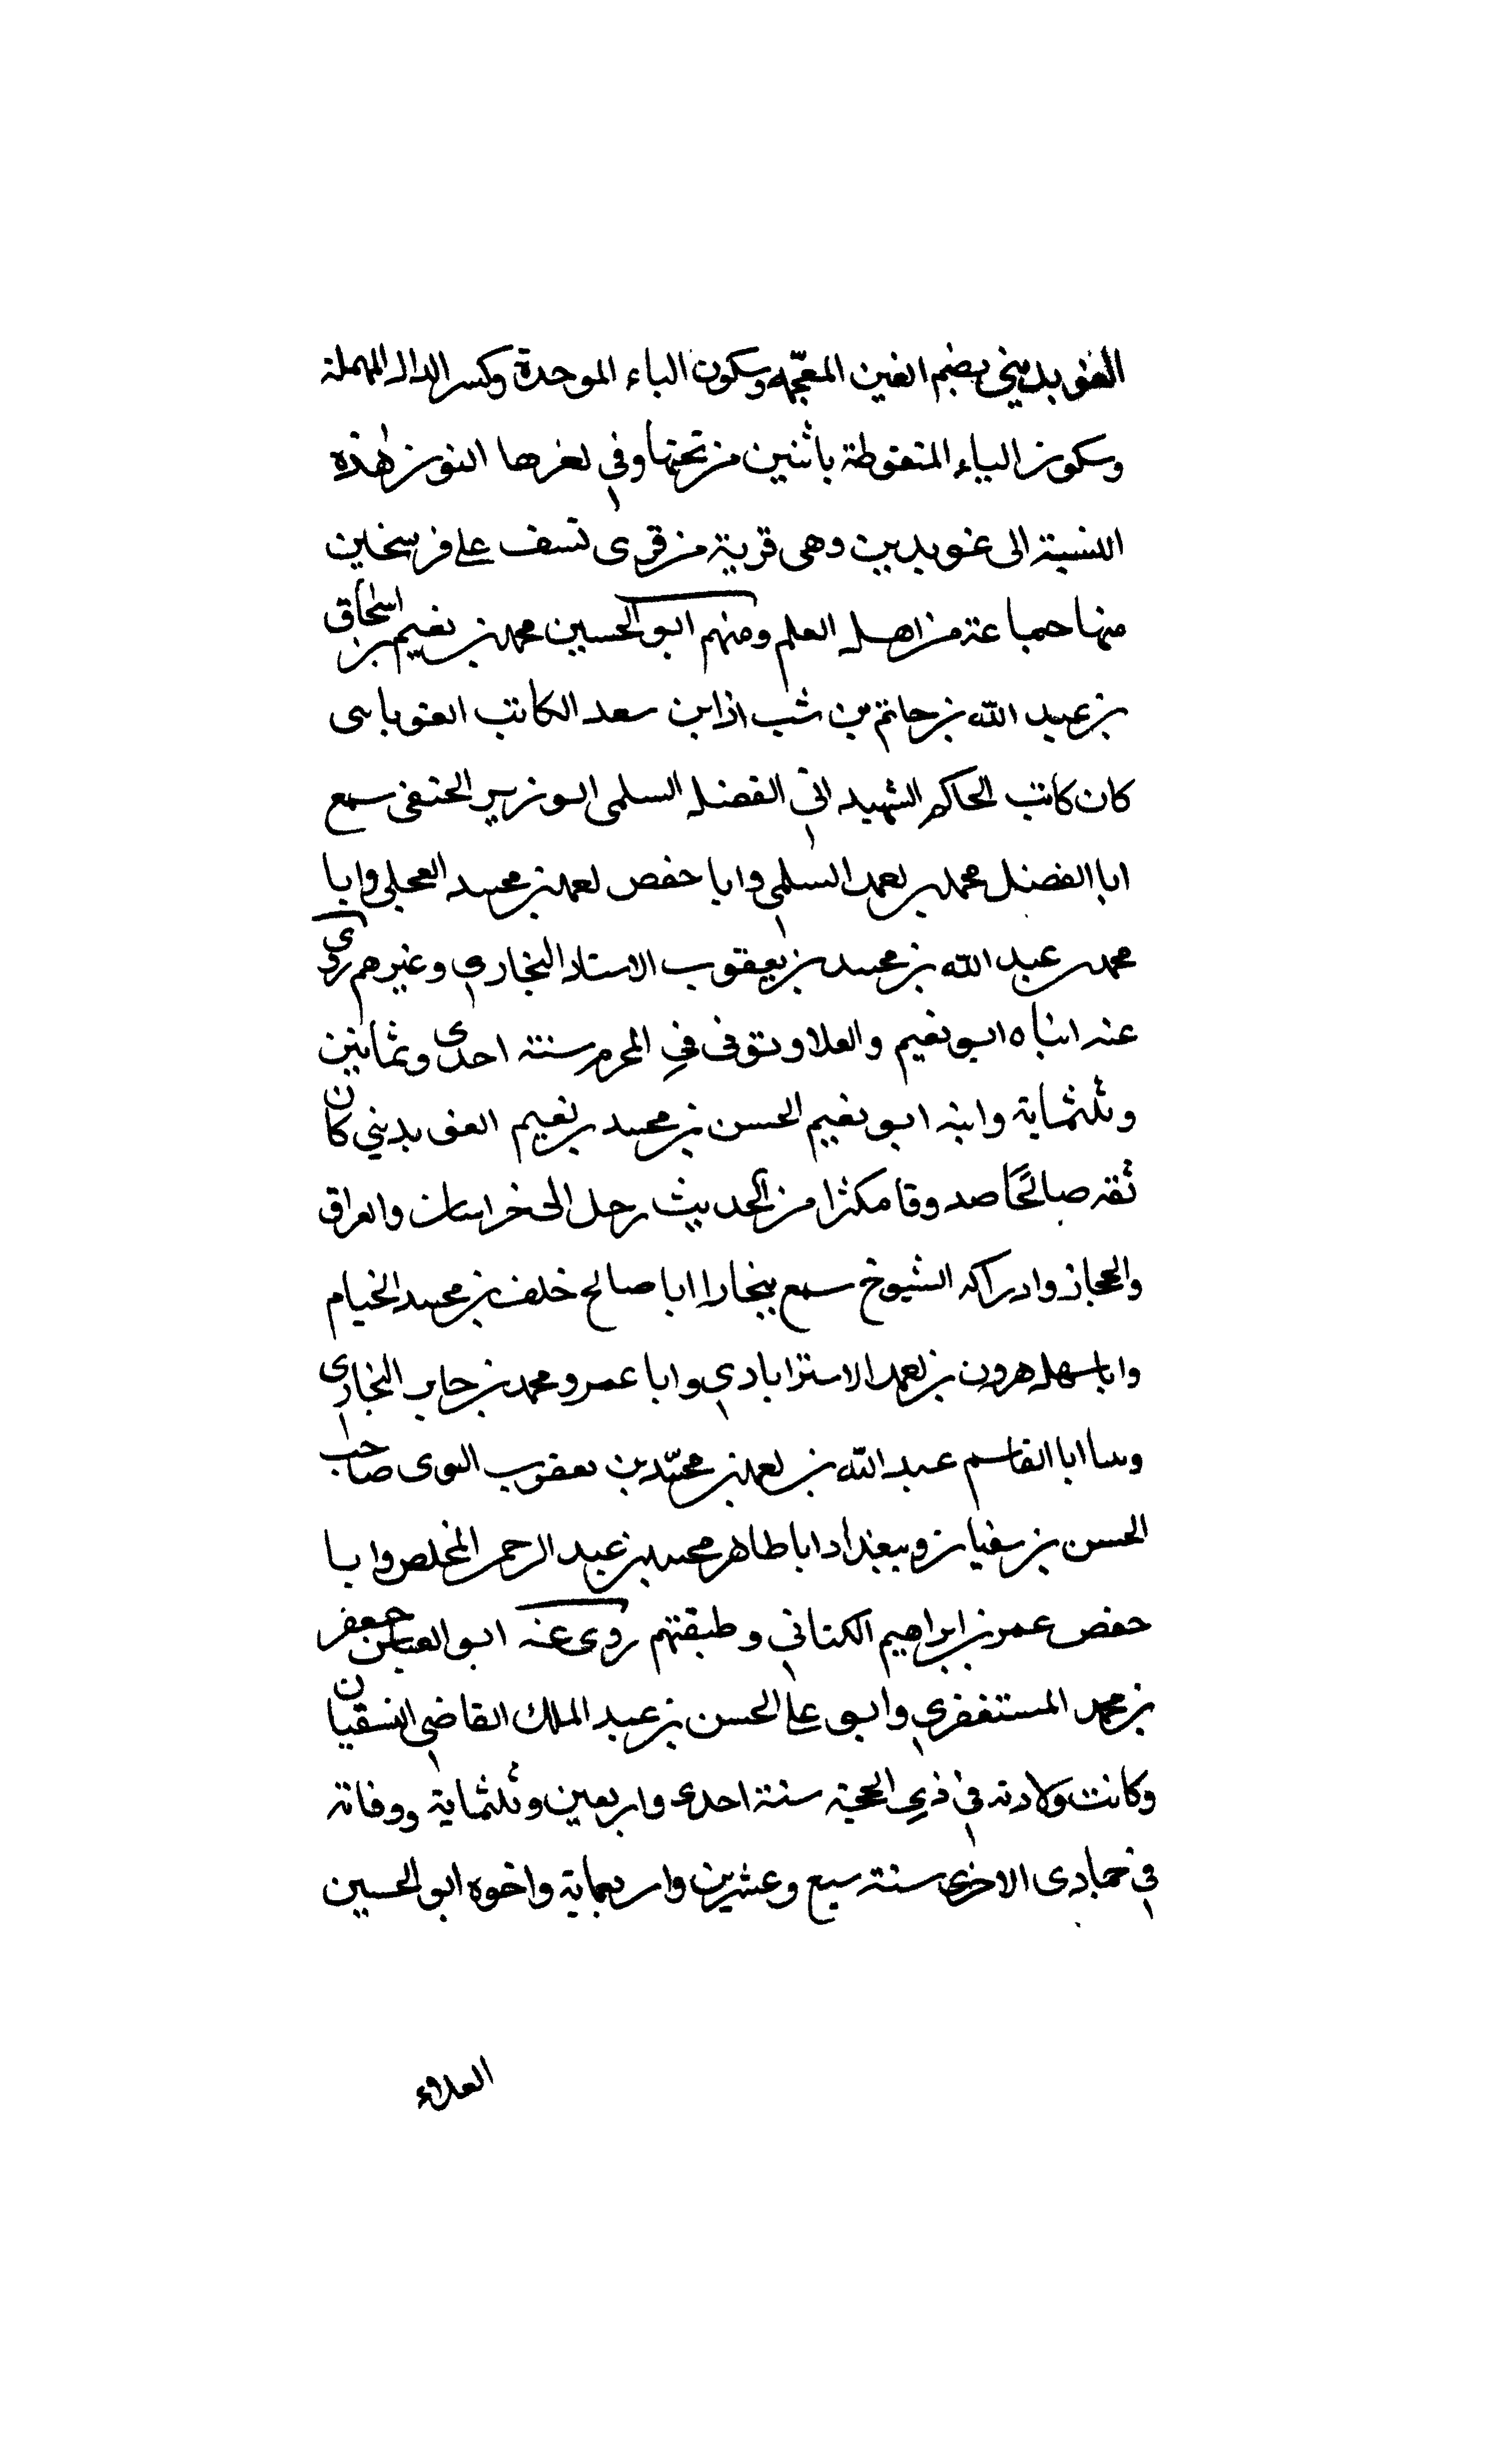 الغوبديني بضم الغين المعجمة وسكون الباء الموحدة وكسر الدال المهملة
وسكون الياء المنقوطة باثنين من تحتها وفي اخرها النون هذه
النسبة الى غوبدين وهى قرية من قرى نسف على فرسخين
منها جماعة من اهل العلم ومنهم ابو الحسين محمد بن نعيم بن اسحاق
بن عبد الله بن حاتم بن شب اذا بن سعد الكاتب
كان كاتب الحاكم الشهيد ابي الفضل السلمى الوزير الحنفى سمع
ابا الفضل محمد بن احمد السلمى وابا حفص احمد بن محمد العجلي وابا
محمد بن عبد الله بن محمد بن يعقوب الاستاد البخاري وغيرهم روى
عنه ابناه ابو نعيم والعلا وتوفى في المحرم سنة احدى وثمانين
وثلثماية وابنه ابو نعيم الحسن بن محمد بن نعيم الغوبديني كان
ثقه صالحًا صدوقا مكثرا من الحديث رحل الى خراسان والعراق
والحجاز وادراكه الشيوخ سمع ببخارا ابا صالح خلف بن محمد الخيام
وابا سهل هرون بن احمد الاسترابادي وابا عمرو محمد بن جابر البخارى
ونسا ابا القاسم عبد الله بن احمد بن محمد بن يعقوب النسوى صاحب
الحسن بن سفيان وببغداد ابا طاهر محمد بن عبد الرحمن المخلص وابا
حفص عمر بن ابراهيم الكتاني وطبقتهم روى عنه ابو العباس جعفر
بن محمد المستغفري وابو على الحسن بن عبد الملك القاضي النسفيان
وكانت ولادته في ذي الحجة سنة احدى واربعين وثلثماية ووفاته
في جمادى الاخرى سنة سبع وعشرين واربعماية واخوه ابو الحسين
العلاء